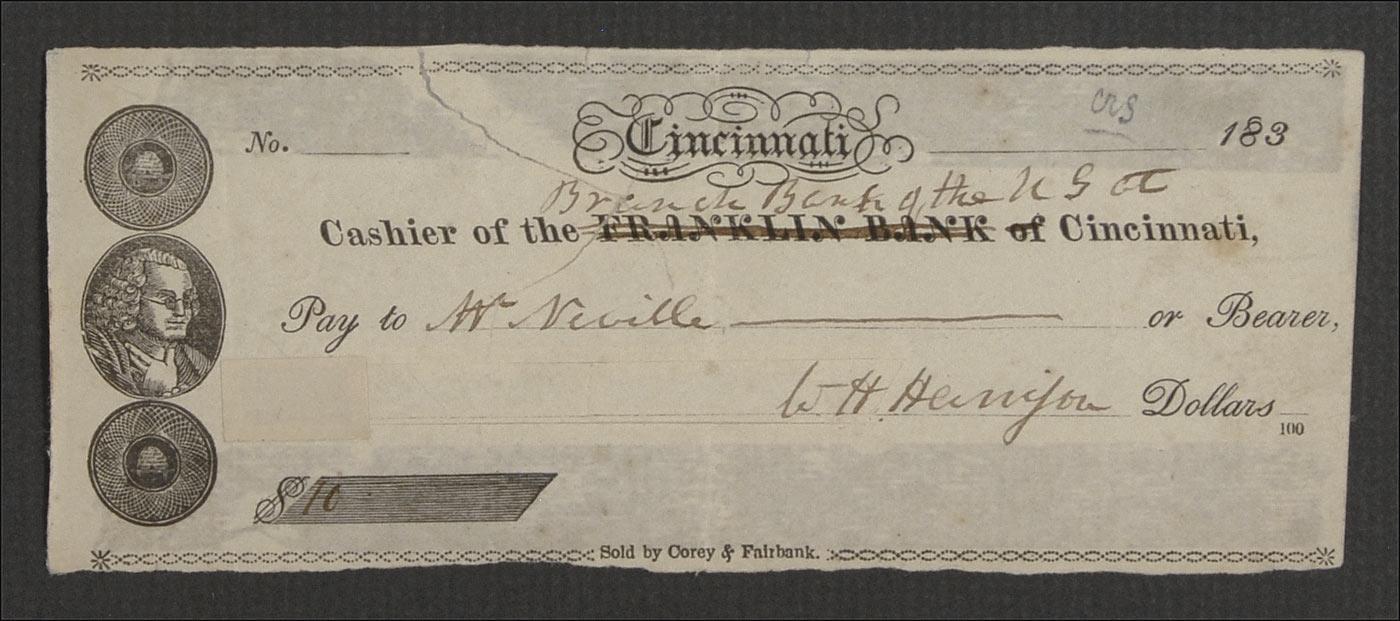 crs
No. Cincinnati 183
Branch Bank of the U S at
Cashier of the FRANKLIN BANK of Cincinnati,
Pay to Mr Neville or Bearer,
W H Harrison Dollars
100
$ 10
Sold by Corey & Fairbank.